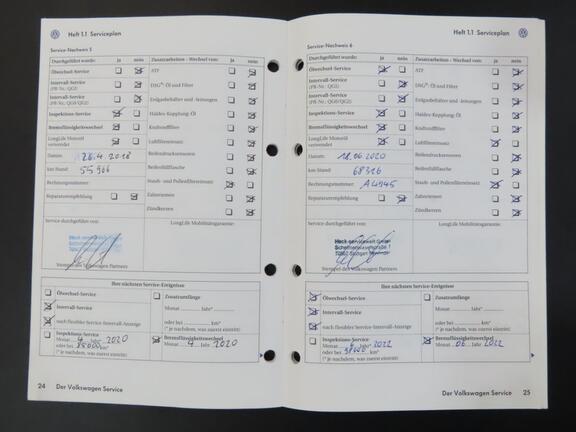 Heft 1.1 Serviceplan
Service-Nachweis 5
Durchgeführt wurde: ja nein
Ölwechsel-Service
Intervall-Service
(PR-Nr.: QG1)
Intervall-Service
(PR-Nr.: QG0/QG2)
Inspektions-Service
Bremsflüssigkeitswechsel
LongLife Motoröl
verwendet
Datum: 26.4.2018
km-Stand: 55 966
Rechnungsnummer:
Reparaturempfehlung
Zusatzarbeiten - Wechsel von: ja nein
ATF
DSG®-Öl und Filter
Erdgasbehälter und -leitungen
Haldex-Kupplung-Öl
Kraftstofffilter
Luftfiltereinsatz
Reifendrucksensoren
Reifenfüllflasche
Staub- und Pollenfiltereinsatz
Zahnriemen
Zündkerzen
Service durchgeführt von:
LongLife Mobilitätsgarantie:
Stempel des Volkswagen Partners
Ihre nächsten Service-Ereignisse
Ölwechsel-Service
Intervall-Service
nach flexibler Service-Intervall-Anzeige
Inspektions-Service
Monat 4 Jahr 2020
oder bei km*
(* je nachdem, was zuerst eintritt)
Zusatzumfänge
Monat Jahr*
oder bei km*
(* je nachdem, was zuerst eintritt)
Bremsflüssigkeitswechsel
Monat 4 Jahr 2020
24 Der Volkswagen Service
Heft 1.1 Serviceplan
Service-Nachweis 6
Durchgeführt wurde: ja nein
Ölwechsel-Service
Intervall-Service
(PR-Nr.: QG1)
Intervall-Service
(PR-Nr.: QG0/QG2)
Inspektions-Service
Bremsflüssigkeitswechsel
LongLife Motoröl
verwendet
Datum: 18.06.2020
km-Stand: 68316
Rechnungsnummer: A4945
Reparaturempfehlung
Zusatzarbeiten - Wechsel von: ja nein
ATF
DSG®-Öl und Filter
Erdgasbehälter und -leitungen
Haldex-Kupplung-Öl
Kraftstofffilter
Luftfiltereinsatz
Reifendrucksensoren
Reifenfüllflasche
Staub- und Pollenfiltereinsatz
Zahnriemen
Zündkerzen
Service durchgeführt von:
LongLife Mobilitätsgarantie:
Stempel des Volkswagen Partners
Ihre nächsten Service-Ereignisse
Ölwechsel-Service
Intervall-Service
nach flexibler Service-Intervall-Anzeige
Inspektions-Service
Monat Jahr 2022
oder bei km*
(* je nachdem, was zuerst eintritt)
Zusatzumfänge
Monat Jahr*
oder bei km*
(* je nachdem, was zuerst eintritt)
Bremsflüssigkeitswechsel
Monat 06 Jahr 2022
Der Volkswagen Service 25